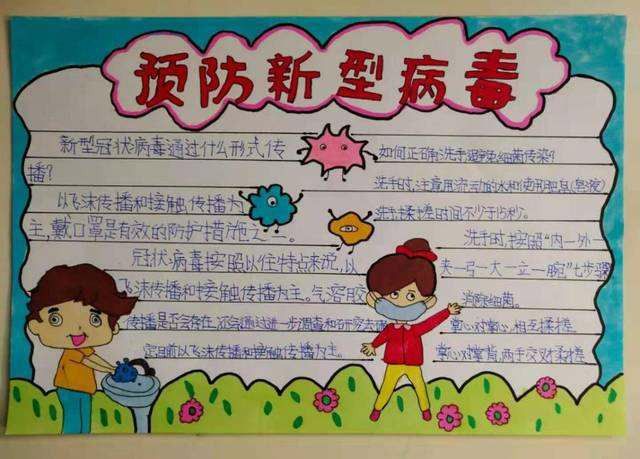 预防新型病毒
新型冠状病毒通过什么形式传
播?
以飞沫传播和接触传播为
主,戴口罩是有效的防护措施之一。
冠状病毒按照以往特点来说,以
飞沫传播和接触传播为主。气溶胶
传播是否存在,还通过进一步调查和研究去
定目前以飞沫传播和接触传播为主。
如何正确洗手避免细菌传染?
洗手时,注意用流动的水和使用肥皂(皂液)
洗手揉搓时间不少于15秒。
洗手时,按照"内一外一
夹一弓一大一立一腕"七步骤
消除细菌。
掌心对掌心相互揉搓
掌心对掌背,两手交叉揉搓